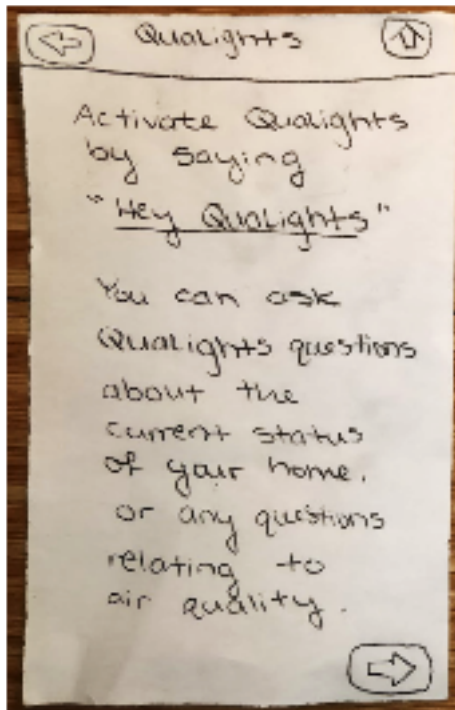 QuaLights
Activate QuaLights
by saying
"Hey QuaLights"
You can ask
QuaLights questions
about the
current status
of your home,
or any questions
relating to
air quality.